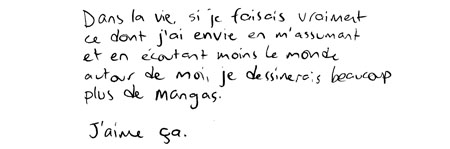 Dans la vie, si je faisais vraiment
ce dont j'ai envie en m'assumant
et en écoutant moins le monde
autour de moi, je dessinerais beaucoup
plus de mangas.
J'aime ça.